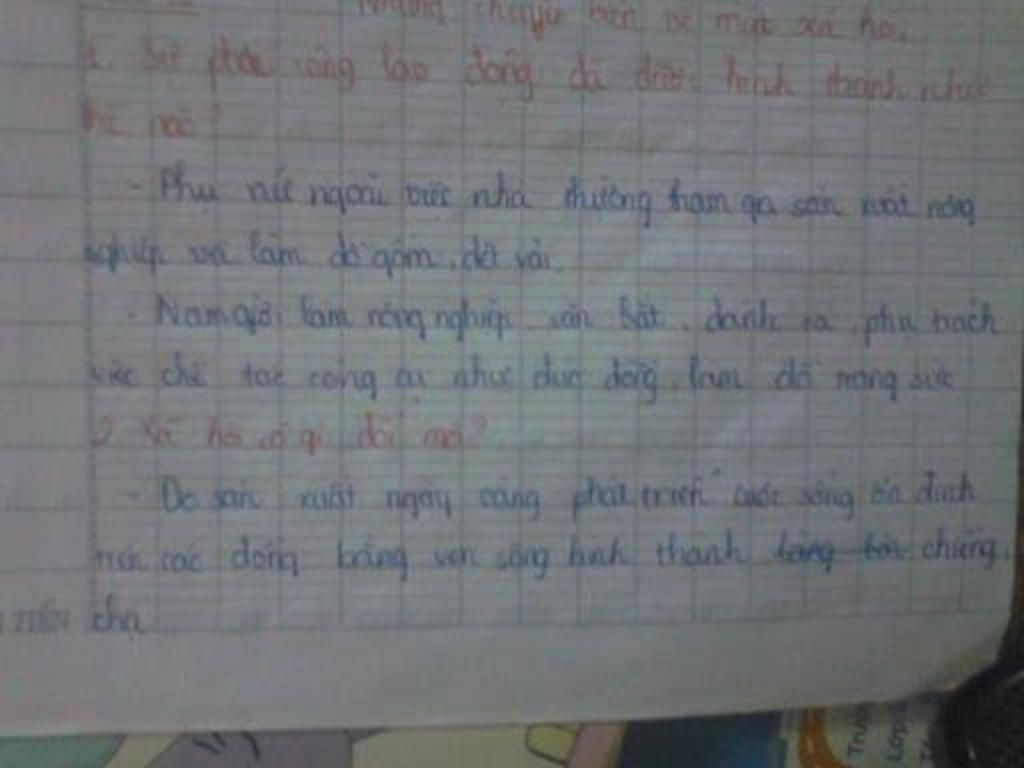 Những chuyển biến về mặt xã hội.
1. Sự phân công lao động đã được hình thành như
thế nào?
- Phụ nữ ngoài việc nhà thường tham gia sản xuất nông
nghiệp và làm đồ gốm, dệt vải.
- Nam giới làm nông nghiệp, săn bắt, đánh cá, phụ trách
việc chế tác công cụ như đúc đồng, làm đồ trang sức
2. Xã hội có gì đổi mới?
- Do sản xuất ngày càng phát triển cuộc sống ổn định
trên các đồng bằng ven sông hình thành làng bản chiềng,
chạ
Trườ
Lớp